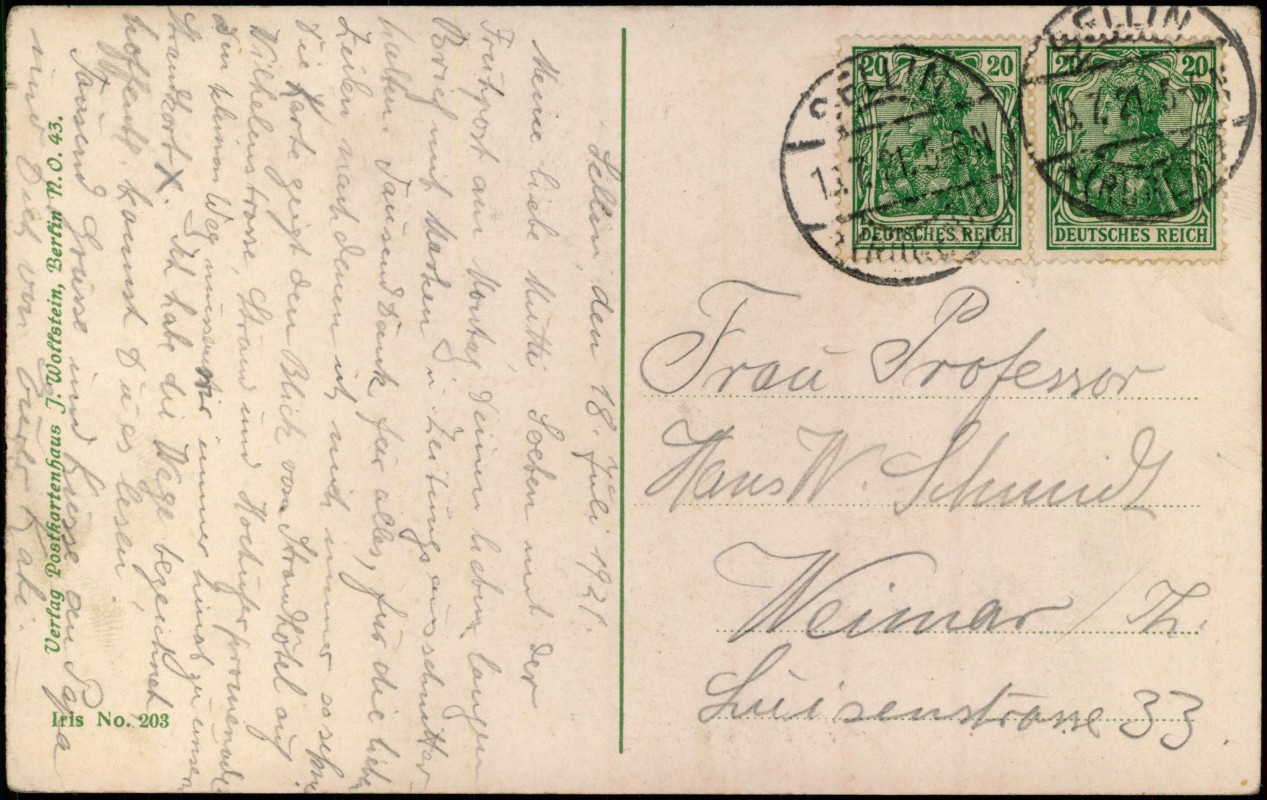 Sellin, den 18. Juli 1921.
Meine liebe Mutti! Soeben mit der
Frühpost am Montag Deinen lieben langen
Brief mit Marken u. Zeitungsausschnitt er-
halten. Tausend Dank für alles, für die lieben
Zeilen nach denen ich mich immer so sehne
Die Karte zeigt den Blick vom Strandhotel auf
Wilhelmstrasse, Strand und Hochuferpromenade
den kleinen Weg müssen wir immer hinab zu unserem
Strandkorb X. Ich habe die Wege bezeichnet
hoffentl. kannst Du es lesen.
Tausend Grüsse und Küsse den Papa
und Dich von Eurer
Verlag Postkartenhaus J. Wollstein, Berlin N. O. 43.
Iris No. 203
20 20
DEUTSCHES REICH
20 20
DEUTSCHES REICH
SELLIN
7.21.5-6N
(RÜGEN)
SELLIN
18.7.21.5-6N
(RÜGEN)
Frau Professor
Hans W. Schmidt
Weimar / Th.
Luisenstrasse 33.